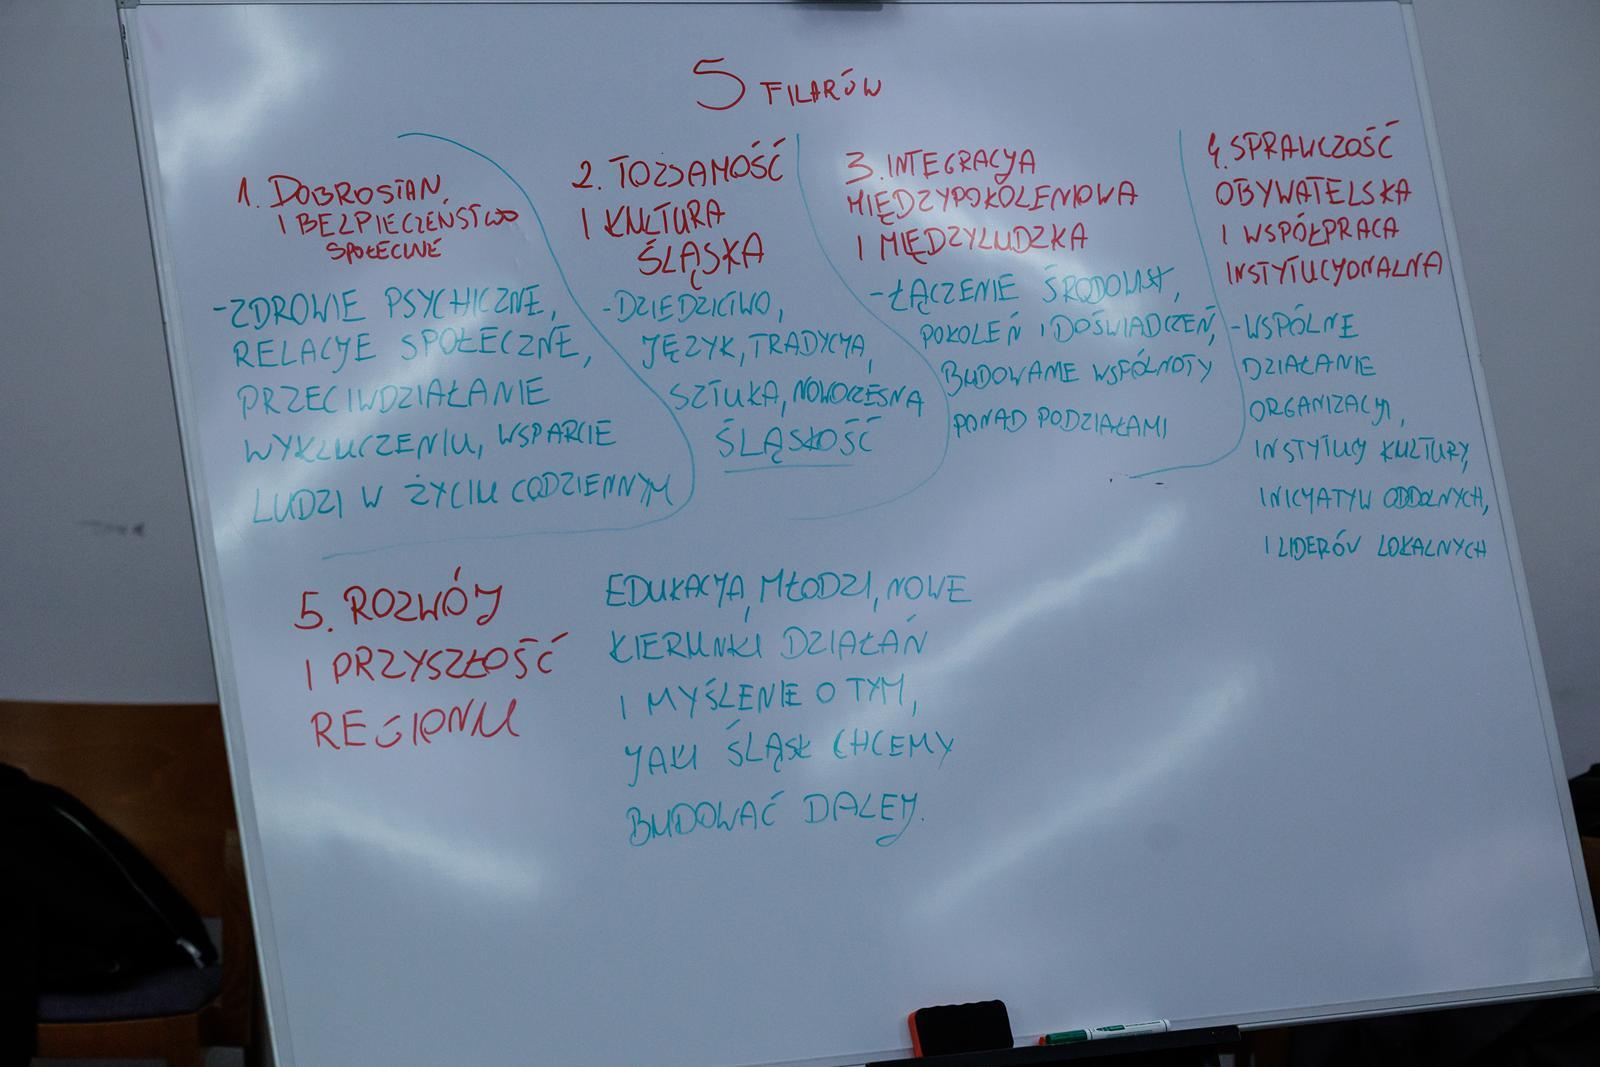 5 FILARÓW
1. DOBROSTAN
I BEZPIECZEŃSTWO
SPOŁECZNE
-ZDROWIE PSYCHICZNE,
RELACJE SPOŁECZNE,
PRZECIWDZIAŁANIE
WYKLUCZENIU, WSPARCIE
LUDZI W ŻYCIU CODZIENNYM
2. TOŻSAMOŚĆ
I KULTURA
ŚLĄSKA
-DZIEDZICTWO,
JĘZYK, TRADYCJA,
SZTUKA, NOWOCZESNA
ŚLĄSKOŚĆ
3. INTEGRACJA
MIĘDZYPOKOLENIOWA
I MIĘDZYLUDZKA
-ŁĄCZENIE ŚRODOWISK,
POKOLEŃ I DOŚWIADCZEŃ,
BUDOWANIE WSPÓLNOTY
PONAD PODZIAŁAMI
4. SPRAWCZOŚĆ
OBYWATELSKA
I WSPÓŁPRACA
INSTYTUCYONALNA
-WSPÓLNE
DZIAŁANIE
ORGANIZACJI,
INSTYTUCJI KULTURY,
INICJATYW ODDOLNYCH,
I LIDERÓW LOKALNYCH
5. ROZWÓJ
I PRZYSZŁOŚĆ
REGIONU
EDUKACJA, MŁODZI, NOWE
KIERUNKI DZIAŁAŃ
I MYŚLENIE O TYM,
JAKI ŚLĄSK CHCEMY
BUDOWAĆ DALEJ.